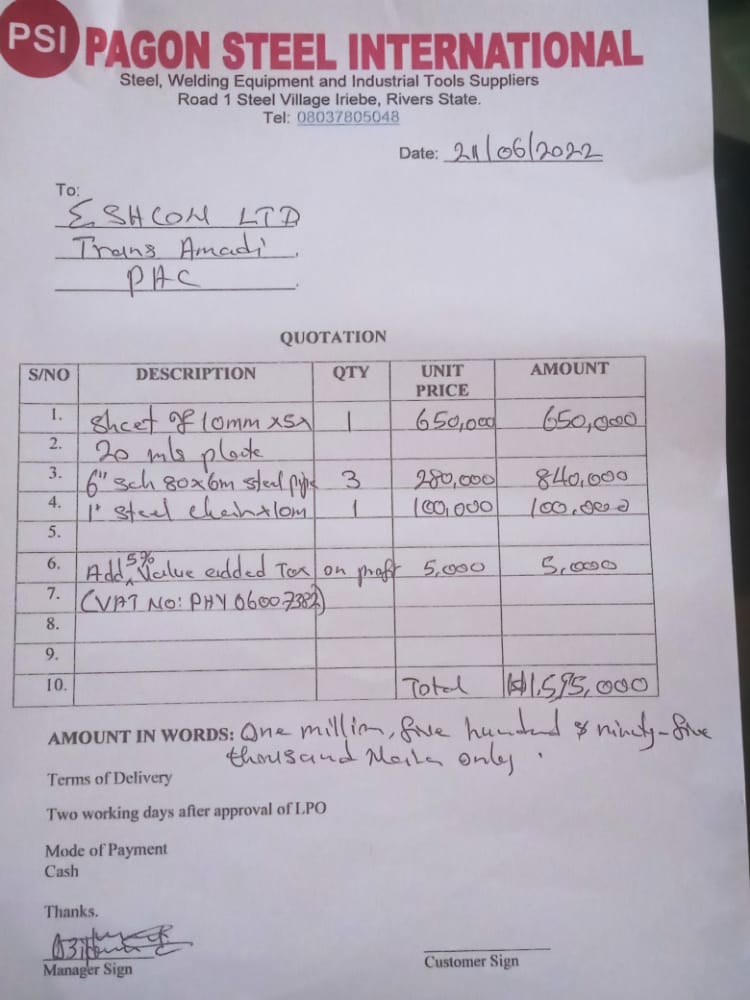 PSI PAGON STEEL INTERNATIONAL
Steel, Welding Equipment and Industrial Tools Suppliers
Road 1 Steel Village Iriebe, Rivers State.
Tel: 08037805048
Date: 21/06/2022
To:
ESHCON LTD
Trans Amadi
PHC
QUOTATION
S/NO DESCRIPTION QTY UNIT PRICE AMOUNT
1. Sheet of 10mm x5x 1 650,000 650,000
2. 20 mls plate
3. 6" sch 80x6m steel pipe 3 280,000 840,000
4. 1" steel chain x10m 1 100,000 100,000
5.
6. Add 5% Value added Tax on profit 5,000 5,000
7. (VAT No: PHV 06007382)
8.
9.
10. Total ₦1,595,000
AMOUNT IN WORDS: One million, five hundred & ninety-five
thousand Naira only.
Terms of Delivery
Two working days after approval of LPO
Mode of Payment
Cash
Thanks.
Manager Sign
Customer Sign